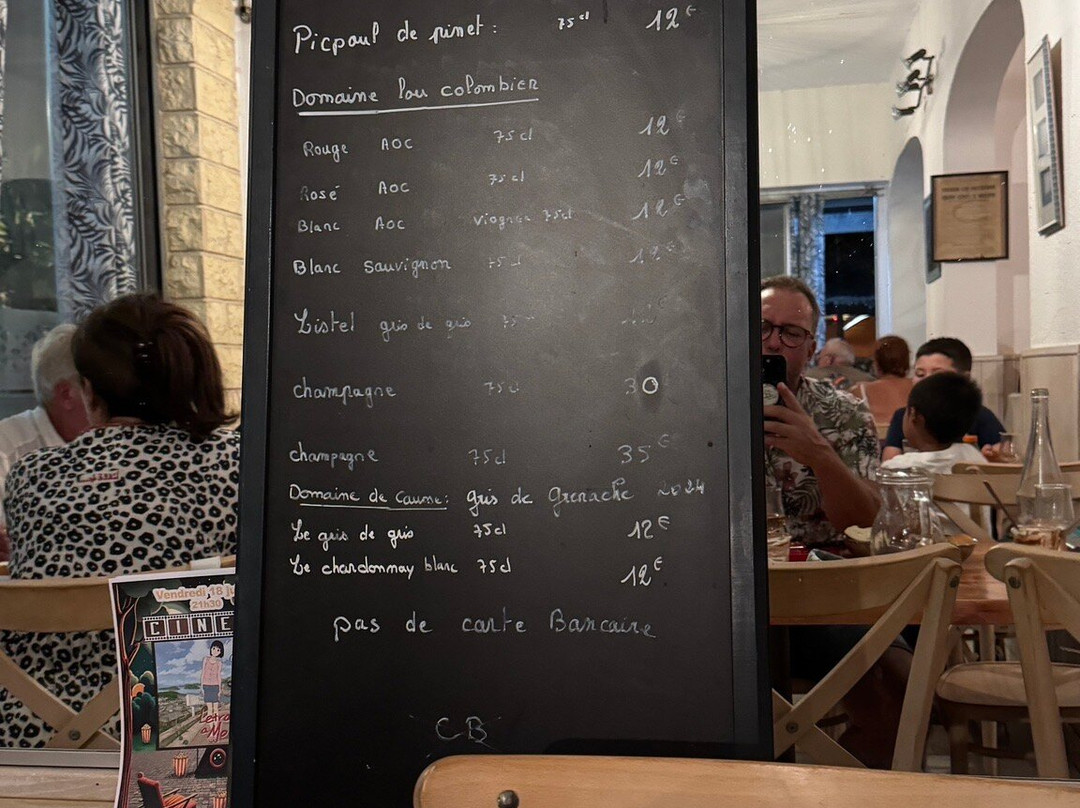 Picpoul de pinet : 75cl 12€
Domaine lou colombier
Rouge AOC 75cl 12€
Rosé AOC 75cl 12€
Blanc AOC Viognier 75cl 12€
Blanc Sauvignon 75cl 12€
Listel gris de gris 75
champagne 75cl 30
champagne 75cl 35€
Domaine de Caume : gris de Grenache 2024
Le gris de gris 75cl 12€
Le chardonnay blanc 75cl 12€
pas de carte Bancaire
CB
Vendredi 18 Ju
21h30
CINE